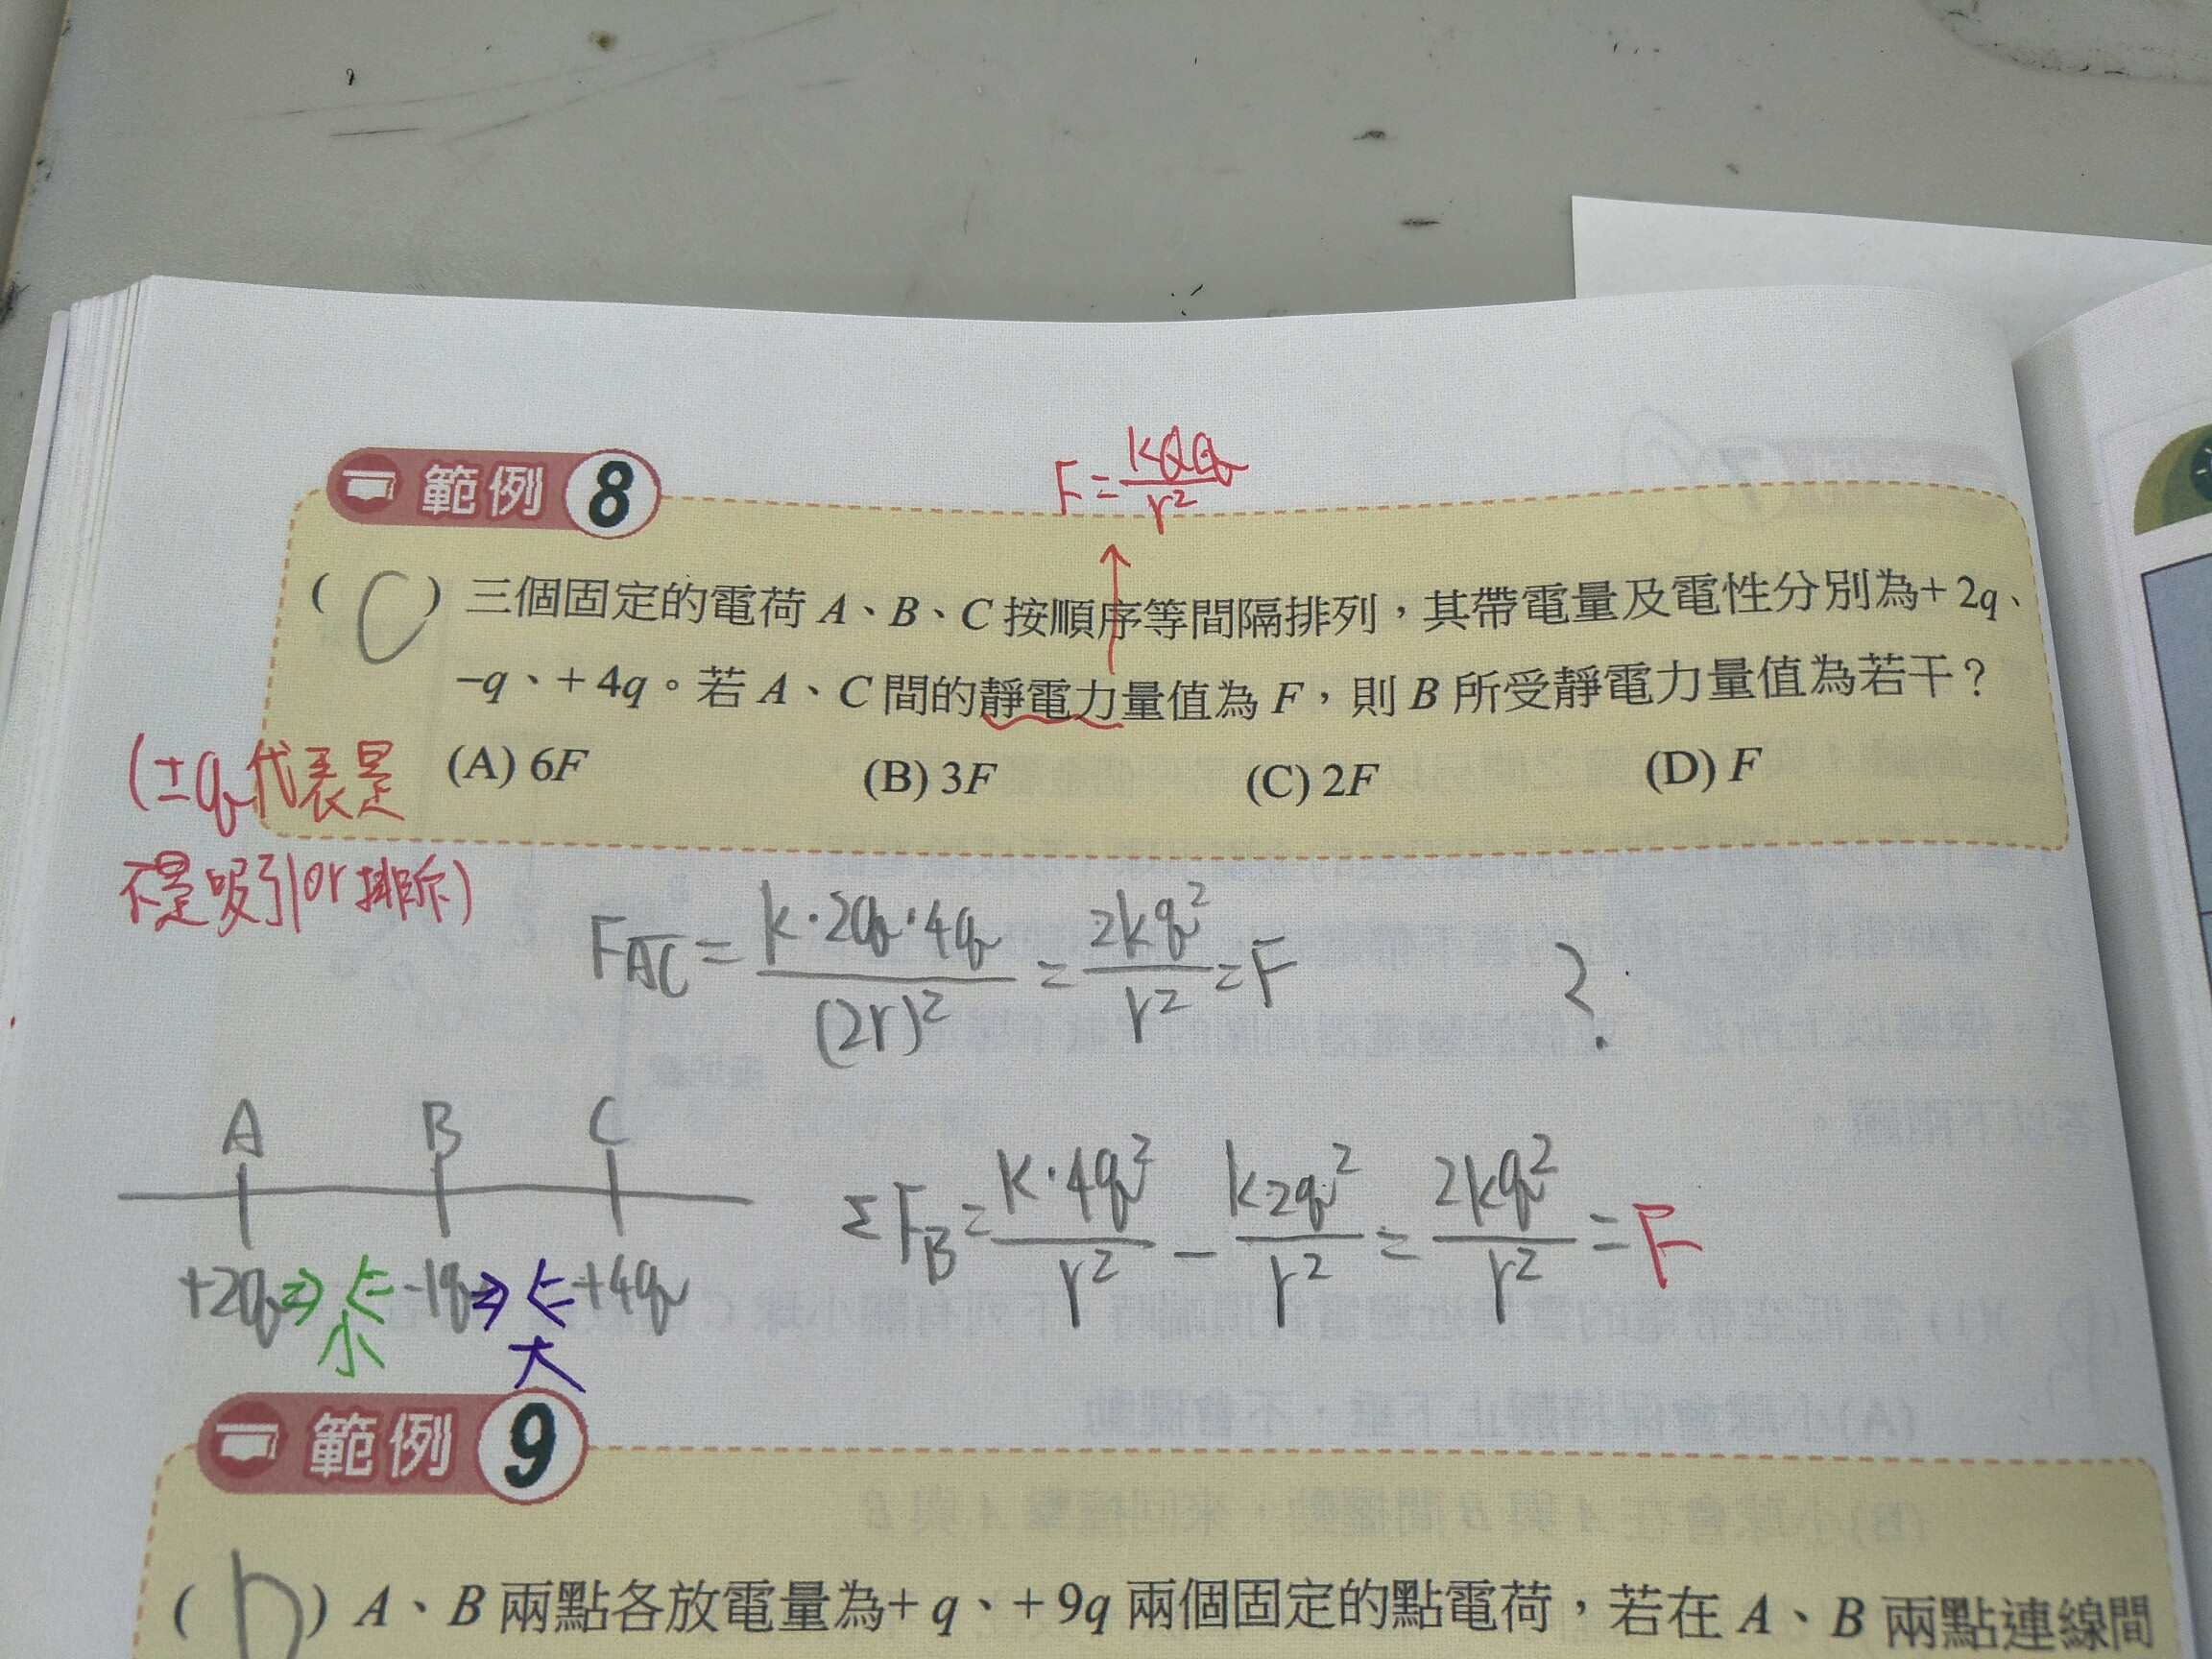 範例 8
F = kQq / r²
( C ) 三個固定的電荷 A、B、C 按順序等間隔排列，其帶電量及電性分別為+ 2q、
−q、+ 4q。若 A、C 間的靜電力量值為 F，則 B 所受靜電力量值為若干？
(A) 6F (B) 3F (C) 2F (D) F
(±q代表是
不是吸引or排斥)
F_AC = k·2q·4q / (2r)² = 2kq² / r² = F ?
A B C
+2q⇒ ⇐ -1q⇒ ⇐ +4q
小 大
ΣF_B = k·4q² / r² − k2q² / r² = 2kq² / r² = F
範例 9
( D ) A、B 兩點各放電量為+ q、+ 9q 兩個固定的點電荷，若在 A、B 兩點連線間